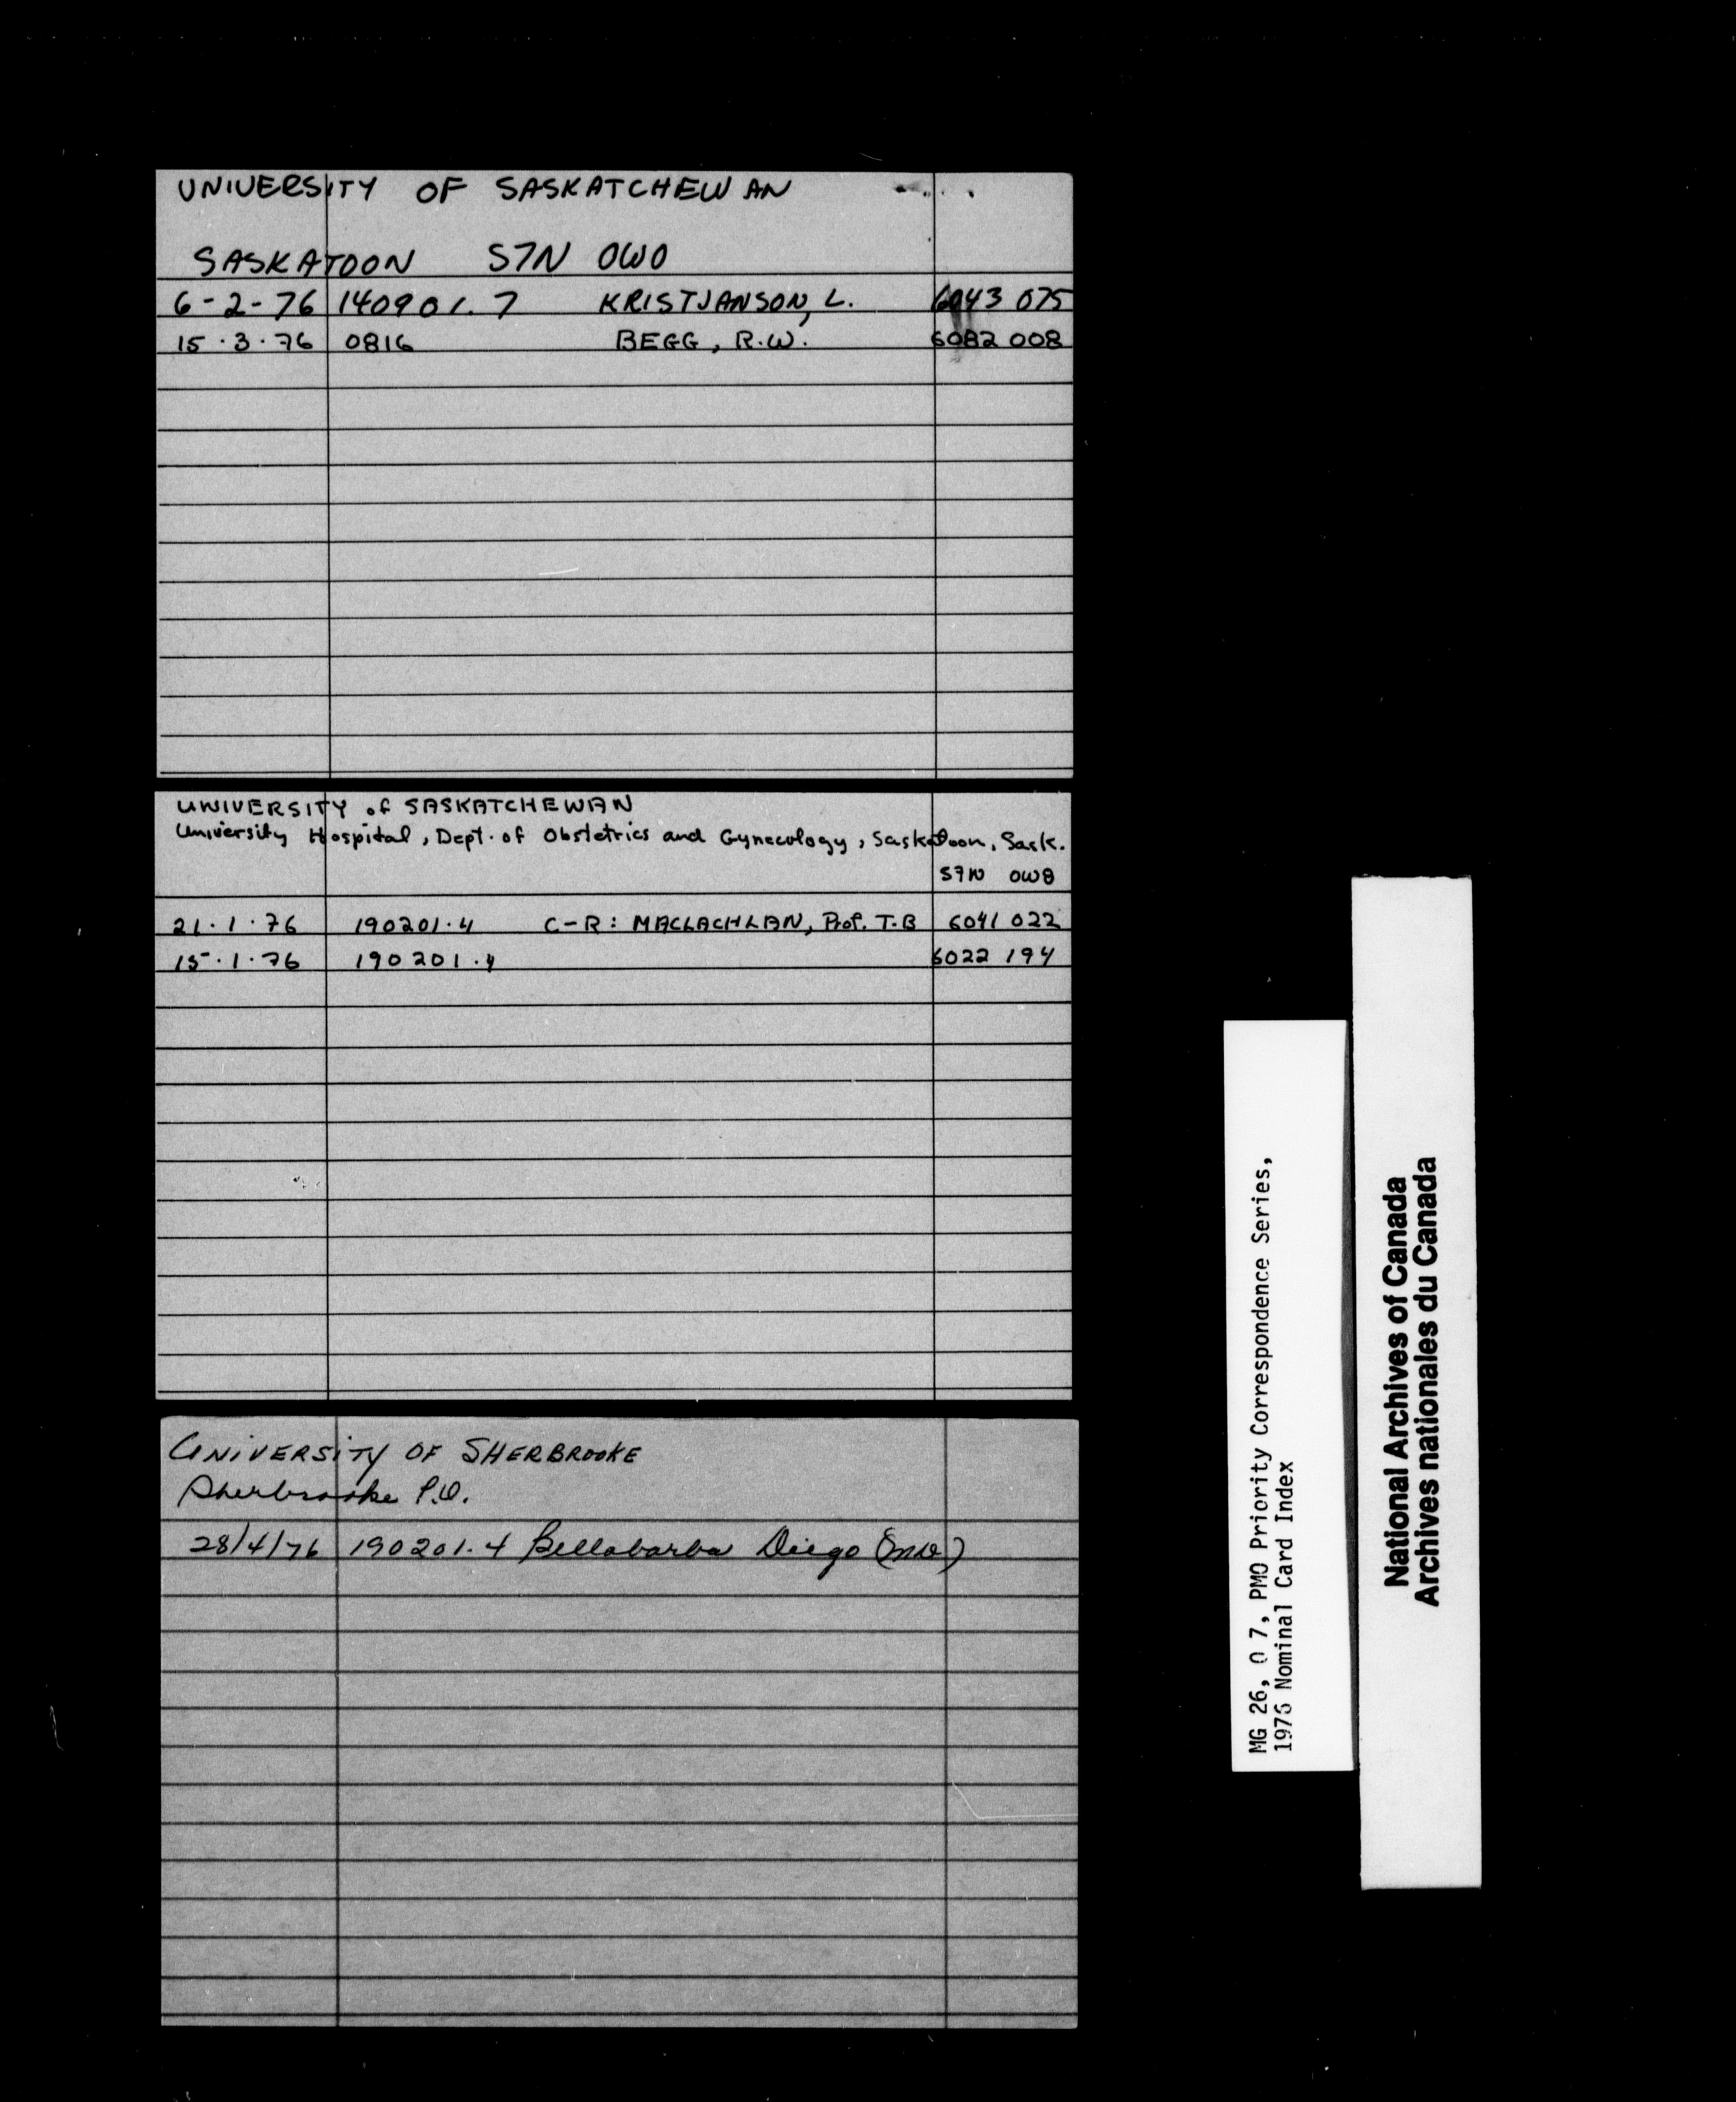 UNIVERSITY OF SASKATCHEWAN
SASKATOON S7N 0W0
6-2-76 140901.7 KRISTJANSON, L. 6043 075
15.3.76 0816 BEGG, R.W. 6082 008
UNIVERSITY of SASKATCHEWAN
University Hospital, Dept. of Obstetrics and Gynecology, Saskatoon, Sask.
S7N 0W8
21.1.76 190201.4 C-R: MACLACHLAN, Prof. T.B 6041 022
15.1.76 190201.4 6022 194
UNIVERSITY OF SHERBROOKE
Sherbrooke P.Q.
28/4/76 190201.4 Bellabarba Diego (MD)
MG 26, O 7, PMO Priority Correspondence Series,
1976 Nominal Card Index
National Archives of Canada
Archives nationales du Canada